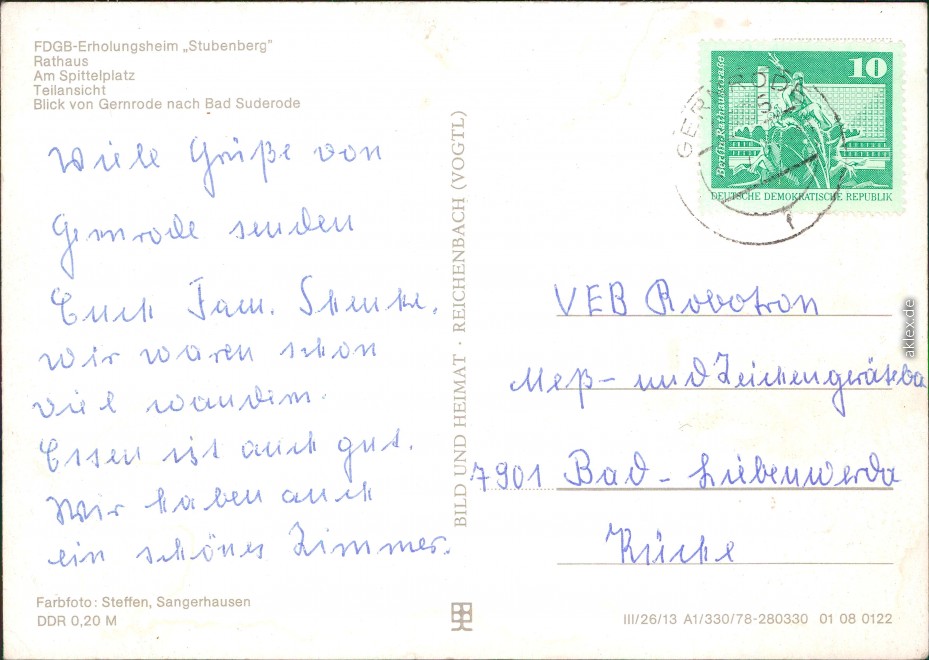 FDGB-Erholungsheim „Stubenberg"
Rathaus
Am Spittelplatz
Teilansicht
Blick von Gernrode nach Bad Suderode
Viele Grüße von
Gernrode senden
Euch Fam. Schenke.
Wir waren schon
viel wandern.
Essen ist auch gut.
Wir haben auch
ein schönes Zimmer.
Farbfoto: Steffen, Sangerhausen
DDR 0,20 M
BILD UND HEIMAT · REICHENBACH (VOGTL)
10
Berlin, Rathausstraße
DEUTSCHE DEMOKRATISCHE REPUBLIK
GERNRODE
f
VEB Robotron
Meß- und Zeichengeräteba
7901 Bad - Liebenwerda
Küche
III/26/13 A1/330/78-280330 01 08 0122
aklex.de